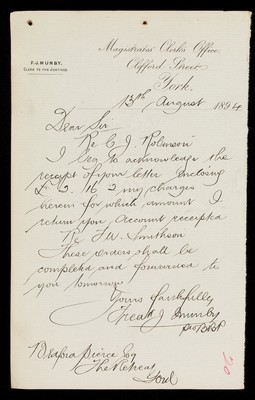 F.J. MUNBY.
CLERK TO THE JUSTICES.
Magistrates Clerk's Office,
Clifford Street,
York.
13th August 1894
Dear Sir
Re C. J. Robinson
I beg to acknowledge the
receipt of your letter enclosing
£2. 16. 2 my charges
herein for which amount I
return you Account receipted
Re F.W. Smithson
These orders shall be
completed and forwarded to
you tomorrow
Yours faithfully
Fredk J Munby
Bedford Pierce Esq
The Retreat
York